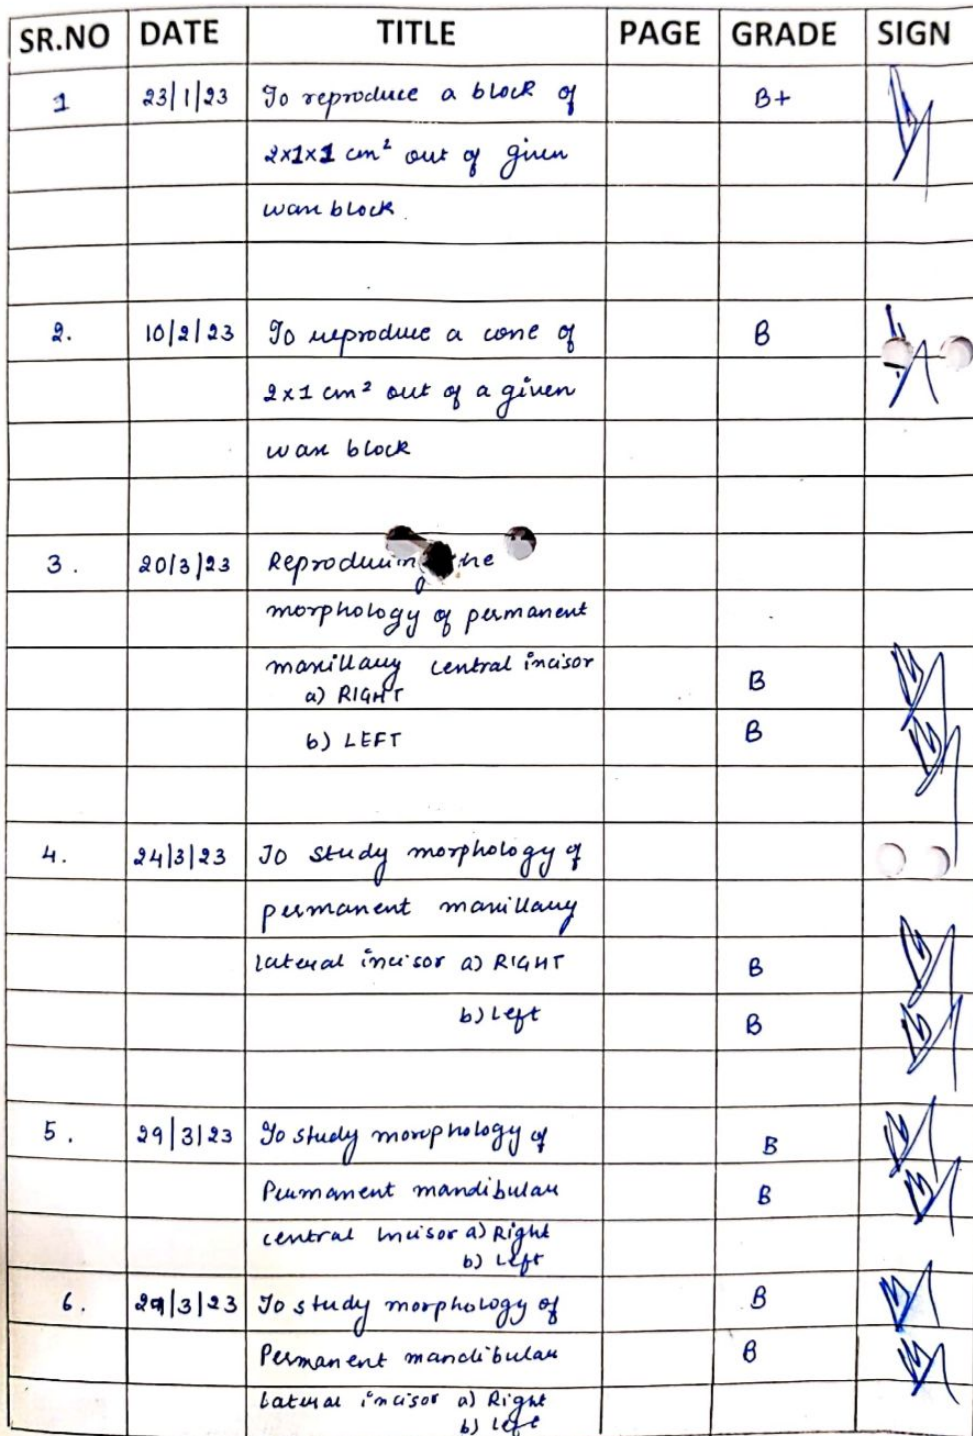 SR.NO DATE TITLE PAGE GRADE SIGN
1 23/1/23 To reproduce a block of B+
2x1x1 cm² out of given
wax block.
2. 10/2/23 To reproduce a cone of B
2x1 cm² out of a given
wax block
3. 20/3/23 Reproducing the
morphology of permanent
maxillary central incisor
a) RIGHT B
b) LEFT B
4. 24/3/23 To study morphology of
permanent maxillary
lateral incisor a) RIGHT B
b) Left B
5. 29/3/23 To study morophology of B
Permanent mandibular B
central Incisor a) Right
b) Left
6. 29/3/23 To study morphology of B
Permanent mandibular B
lateral incisor a) Right
b) left